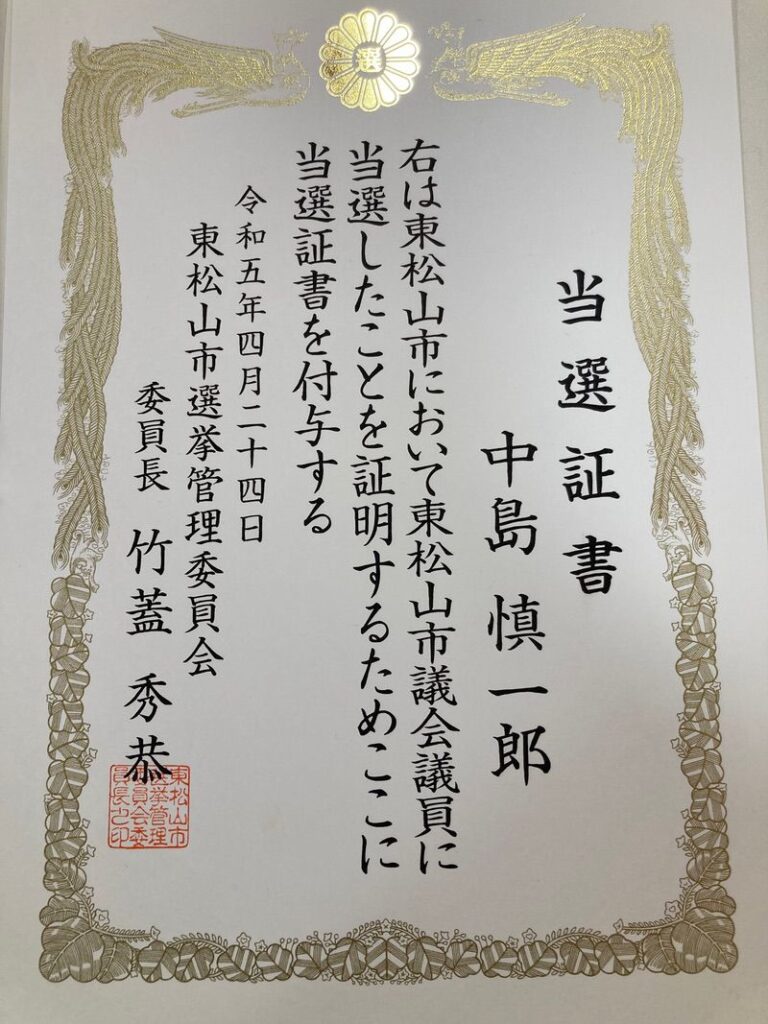 選
当選証書
中島慎一郎
右は東松山市において東松山市議会議員に
当選したことを証明するためここに
当選証書を付与する
令和五年四月二十四日
東松山市選挙管理委員会
委員長 竹蓋秀恭
東松山市
選挙管理
委員会委
員長之印